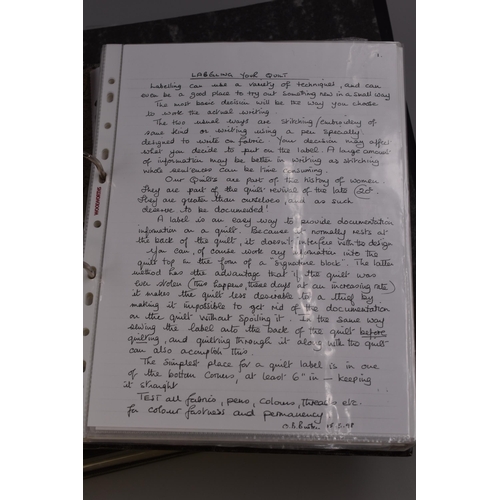 1.
LABELLING YOUR QUILT
Labelling can use a variety of techniques, and can
even be a good place to try out something new in a small way
The most basic decision will be the way you choose
to work the actual writing.
The two usual ways are stitching/embroidery of
some kind or writing using a pen specially
designed to write on fabric. Your decision may affect
what you decide to put on the label. A large amount
of information may be better in writing as stitching
whole sentences can be time consuming.
Our Quilts are part of the history of women
They are part of the quilt revival of the late 20c
They are greater than ourselves, and as such
deserve to be documented!
A label is an easy way to provide documentation
information on a quilt. Because it normally rests at
the back of the quilt, it doesn't interfere with the design
You can, of course work any information into the
quilt top in the form of a "signature block". The latter
method has the advantage that if the quilt was
ever stolen (this happens these days at an increasing rate)
it makes the quilt less desirable to a thief by
making it impossible to get rid of the documentation
on the quilt without spoiling it. In the same way
sewing the label onto the back of the quilt before
quilting, and quilting through it along with the quilt
can also accomplish this.
The simplest place for a quilt label is in one
of the bottom corners, at least 6" in — keeping
it straight
TEST all fabric, pens, colours, threads etc.
for colour fastness and permanency